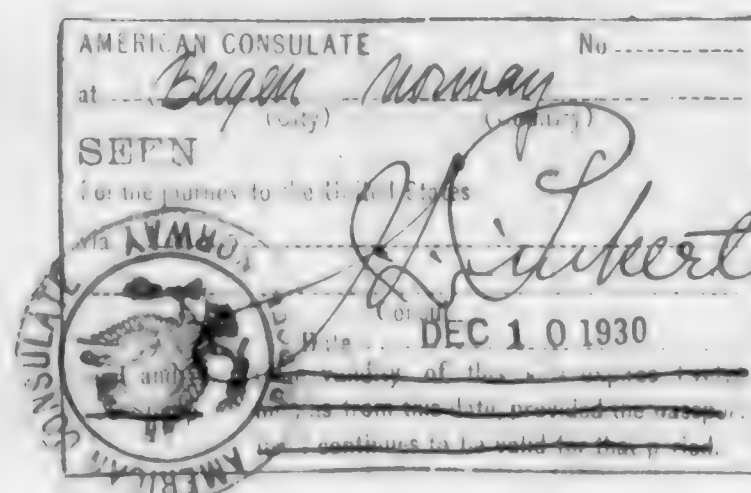 AMERICAN CONSULATE No
at Bergen Norway
(City) (Country)
SEEN
For the journey to the United States
Via
Consul
Date DEC 10 1930
of this
from this date, provided the passport
continues to be valid for that period.
AMERICAN CONSULATE NORWAY